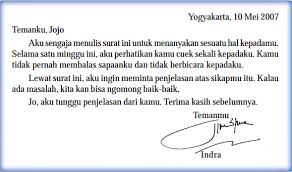 Yogyakarta, 10 Mei 2007
Temanku, Jojo
Aku sengaja menulis surat ini untuk menanyakan sesuatu hal kepadamu.
Selama satu minggu ini, aku perhatikan kamu cuek sekali kepadaku. Kamu
tidak pernah membalas sapaanku dan tidak berbicara kepadaku.
Lewat surat ini, aku ingin meminta penjelasan atas sikapmu itu. Kalau
ada masalah, kita kan bisa ngomong baik-baik.
Jo, aku tunggu penjelasan dari kamu. Terima kasih sebelumnya.
Temanmu
Indra